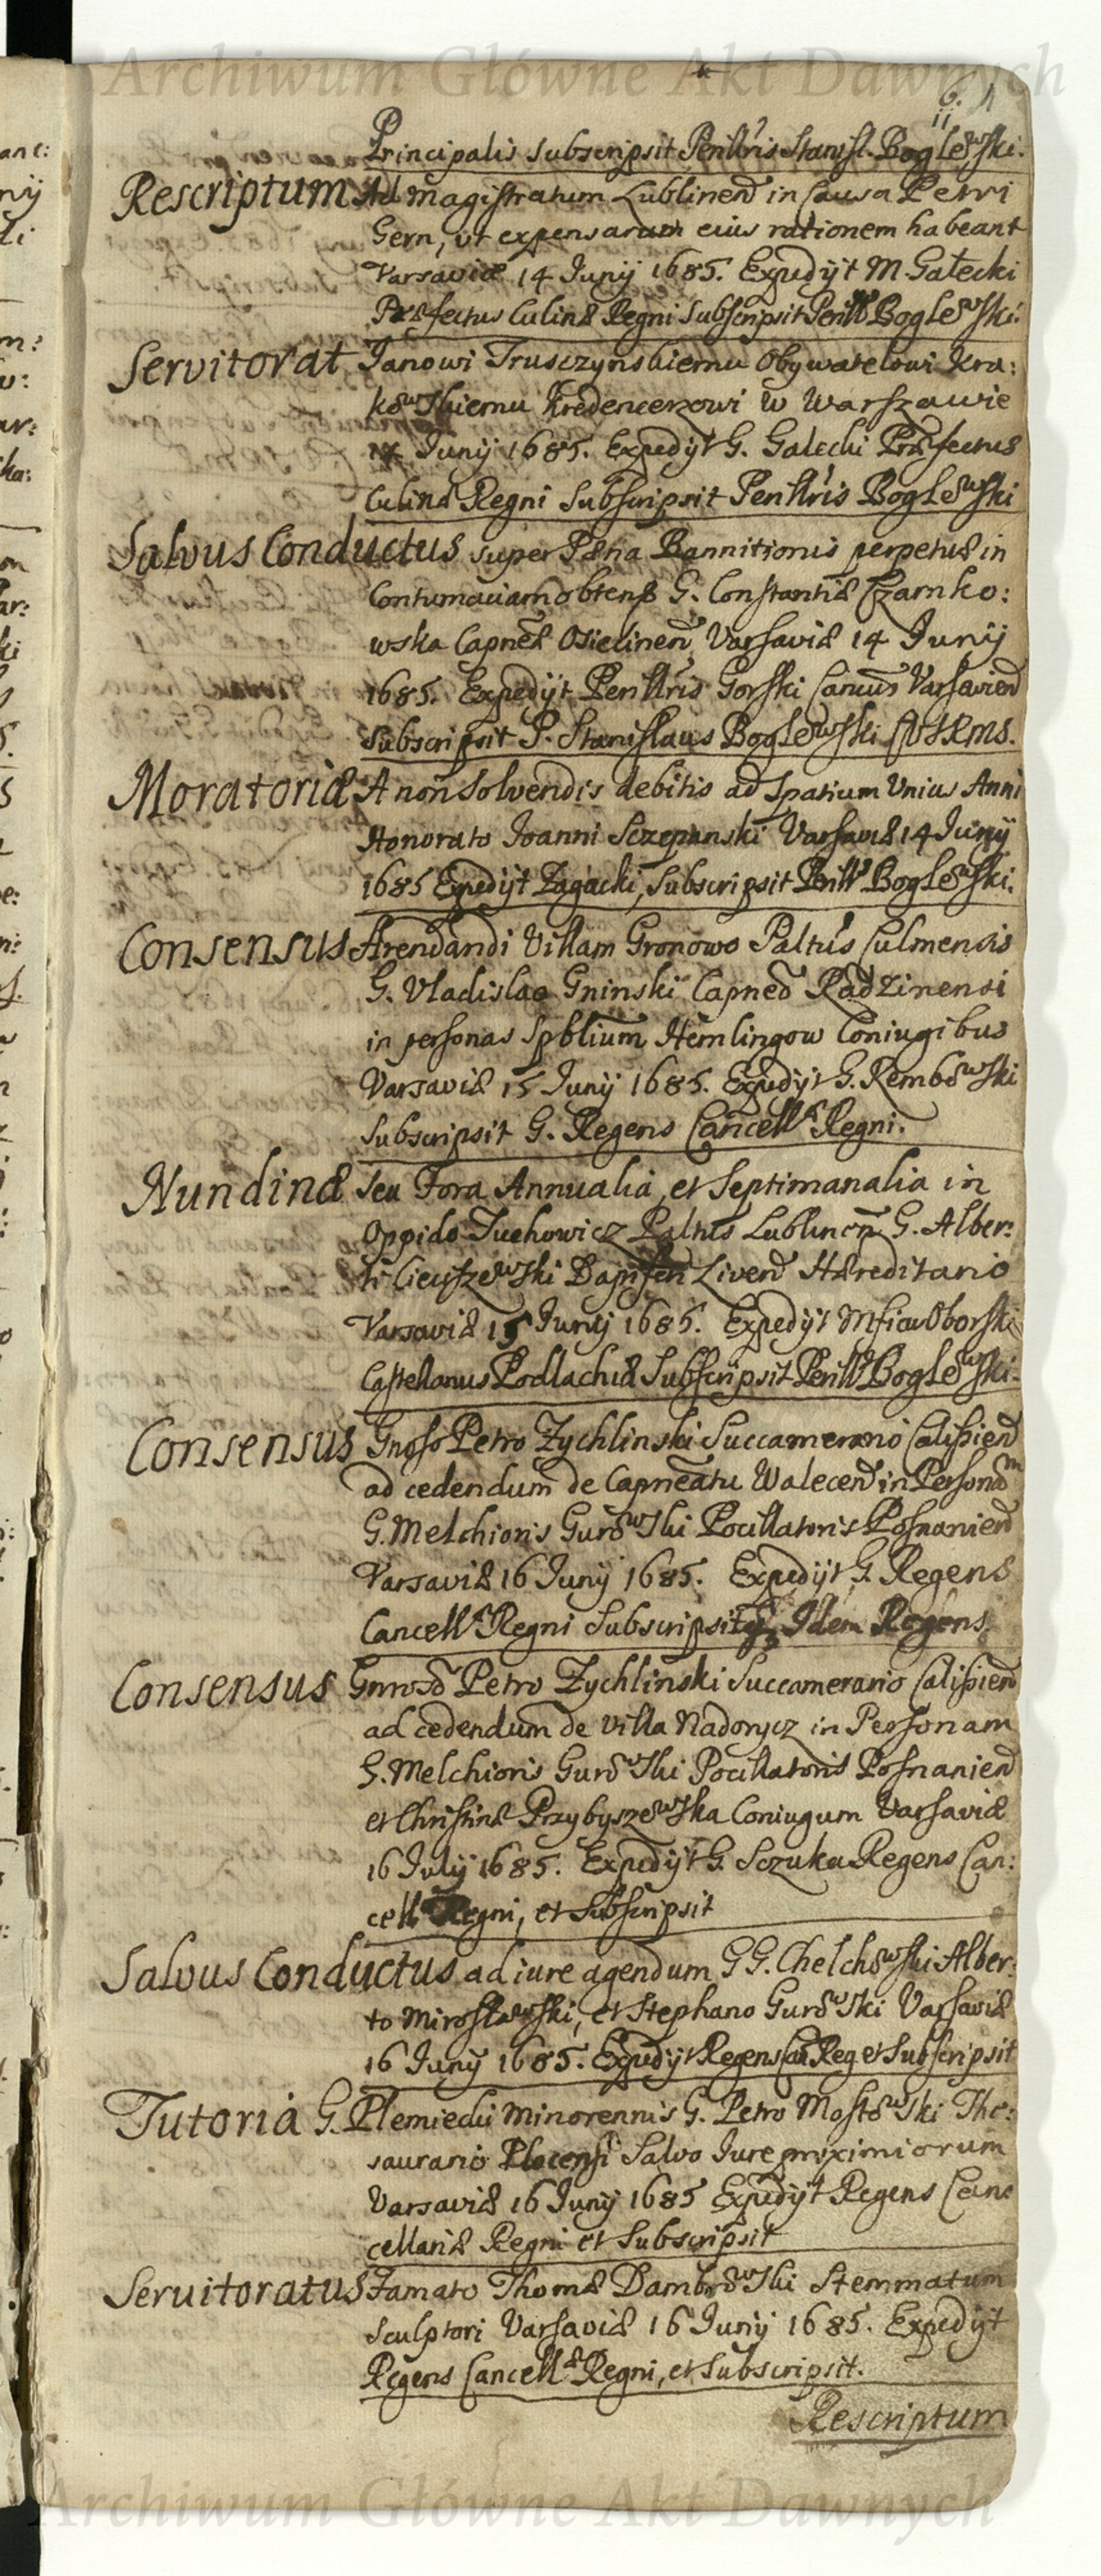 Archiwum Główne Akt Dawnych
6.
11
Principalis subscripsit Perillris Stanisl. Boglewski.
Rescriptum Ad Magistratum Lublinen in Causa Petri
Gern, ut expensarum eius rationem habeant
Varsaviæ 14 Junij 1685. Expedijt M. Gałecki
Præfectus Culinæ Regni Subscripsit Perill Boglewski.
Servitorat Janowi Trusczynskiemu Obywatelowi Kra:
kowskiemu Kredencerzowi w Warszawie
14 Junij 1685. Expedijt G. Galecki Præfectus
Culinæ Regni Subscripsit Perillris Boglewski
Salvus Conductus super Pæna Bannitionis perpetuæ in
Contumaciam obtens G. Constantiæ Czarnko:
wska Capneæ Osiecinen Varsaviæ 14 Junij
1685. Expedijt Perillris Gorski Cancus Varsavien
Subscripsit P. Stanislaus Boglewski SRMS.
Moratoriæ A non Solvendis debitis ad Spatium Unius Anni
Honorato Joanni Sczepanski Varsaviæ 14 Junij
1685 Expedijt Zagacki, Subscripsit Perill Boglewski.
Consensus Arendandi Villam Gronowo Paltus Culmensis
G. Vladislao Gninski Capneo Radzinensi
in personas Spblium Hemlingow Coniugibus
Varsaviæ 15 Junij 1685. Expedijt G. Rembowski
Subscripsit G. Regens Cancellæ Regni.
Nundinæ Seu Fora Annualia, et Septimanalia in
Oppido Tuchowicz Paltus Lublinen G. Alber:
ti Cieciszewski Dapiferi Liven Hæreditario
Varsaviæ 15 Junij 1685. Expedijt Mficus Oborski
Castellanus Podlachiæ Subscripsit Perill Boglewski.
Consensus Gnoso Petro Zychlinski Succamerario Calissien
ad cedendum de Capneatu Walecen in Personam
G. Melchioris Gurowski Pocillatoris Posnanien
Varsaviæ 16 Junij 1685. Expedijt G. Regens
Cancellæ Regni Subscripsitq Idem Regens.
Consensus Gnroso Petro Zychlinski Succamerario Calissien
ad cedendum de Villa Nadorycz in Personam
G. Melchioris Gurowski Pocillatoris Posnanien
et Christinæ Przybyszewska Coniugum Varsaviæ
16 Julij 1685. Expedijt G. Sczuka Regens Can:
cell Regni, et Subscripsit
Salvus Conductus ad iure agendum GG. Chelchowski Alber:
to Mirosławski, et Stephano Gurowski Varsaviæ
16 Junij 1685. Expedijt Regens Can Reg et Subscripsit
Tutoria G. Plemiecki Minorennis G. Petro Mostowski The:
saurario Plocensi Salvo Jure proximiorum
Varsaviæ 16 Junij 1685 Expedijt Regens Canc
cellariæ Regni et Subscripsit
Seruitoratus Famato Thomæ Dambrowski Stemmatum
Sculptori Varsaviæ 16 Junij 1685. Expedijt
Regens Cancellæ Regni, et Subscripsit.
Rescriptum
Archiwum Główne Akt Dawnych